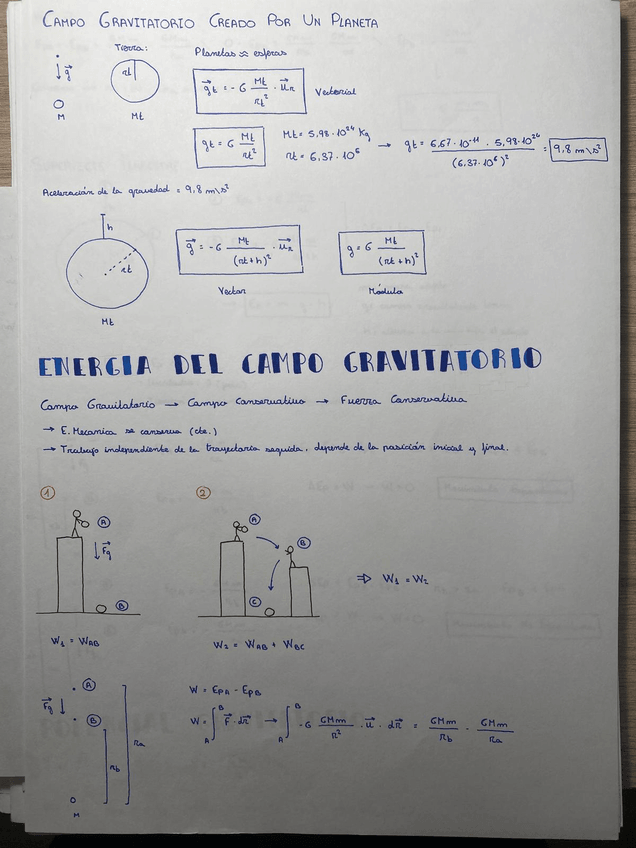 CAMPO GRAVITATORIO CREADO POR UN PLANETA
Tierra:
Planetas ≈ esferas
g⃗
rt
M
Mt
g⃗t = -G Mt/rt² · u⃗r
Vectorial
gt = G Mt/rt²
Mt = 5,98·10²⁴ Kg
rt = 6,37·10⁶
→ gt = 6,67·10⁻¹¹ · 5,98·10²⁴/(6,37·10⁶)² = 9,8 m\s²
Aceleración de la gravedad = 9,8 m\s²
h
rt
Mt
g⃗ = -G Mt/(rt+h)² · u⃗r
Vector
g = G Mt/(rt+h)²
Módulo
ENERGIA DEL CAMPO GRAVITATORIO
Campo Gravitatorio → Campo Conservativo → Fuerza Conservativa
→ E. Mecanica se conserva (cte.)
→ Trabajo independiente de la trayectoria seguida, depende de la posición inicial y final.
1
2
A
F⃗g
B
A
B
C
⇒ W₁ = W₂
W₁ = WAB
W₂ = WAB + WBC
A
F⃗g
B
Ra
Rb
M
W = EpA - EpB
W = ∫AB F⃗·dr⃗ → ∫AB -G GMm/R² · u⃗ · dr⃗ = GMm/Rb · GMm/Ra